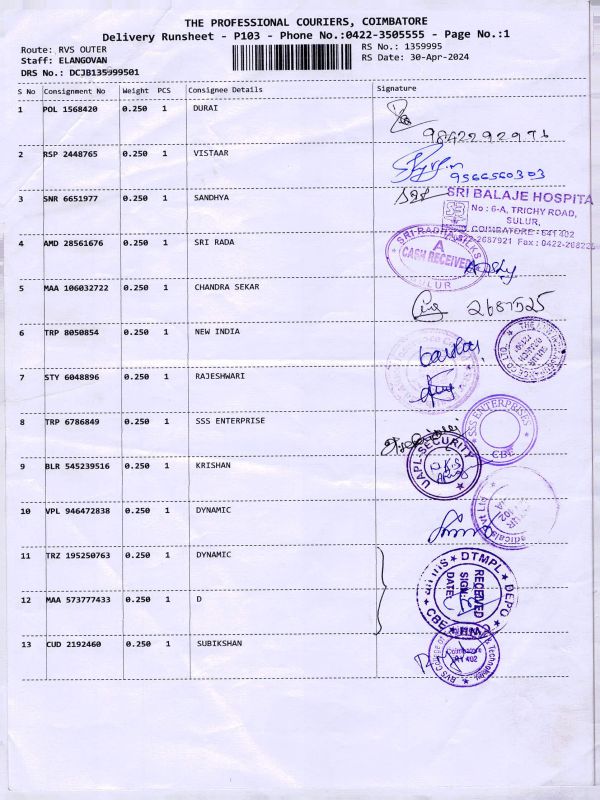 THE PROFESSIONAL COURIERS, COIMBATORE
Delivery Runsheet - P103 - Phone No.:0422-3505555 - Page No.:1
Route: RVS OUTER
RS No.: 1359995
Staff: ELANGOVAN
RS Date: 30-Apr-2024
DRS No.: DCJB135999501
S No Consignment No Weight PCS Consignee Details Signature
1 POL 1568420 0.250 1 DURAI
9842292971
2 RSP 2448765 0.250 1 VISTAAR
9566560303
3 SNR 6651977 0.250 1 SANDHYA
SRI BALAJE HOSPITA
No : 6-A, TRICHY ROAD,
SULUR,
COIMBATORE - 641 402
2687921 Fax : 0422-268225
4 AMD 28561676 0.250 1 SRI RADA
SRI-RADHA SILKS
A
CASH RECEIVED
SULUR
5 MAA 106032722 0.250 1 CHANDRA SEKAR
2687525
6 TRP 8050854 0.250 1 NEW INDIA
7 STY 6048896 0.250 1 RAJESHWARI
8 TRP 6786849 0.250 1 SSS ENTERPRISE
SSS ENTERPRISES
CBE
9 BLR 545239516 0.250 1 KRISHAN
UAPL SECURITY
10 VPL 946472838 0.250 1 DYNAMIC
11 TRZ 195250763 0.250 1 DYNAMIC
DTMPL DEPO
RECEIVED
SIGN:
DATE:
CBE
12 MAA 573777433 0.250 1 D
13 CUD 2192460 0.250 1 SUBIKSHAN
Coimbatore